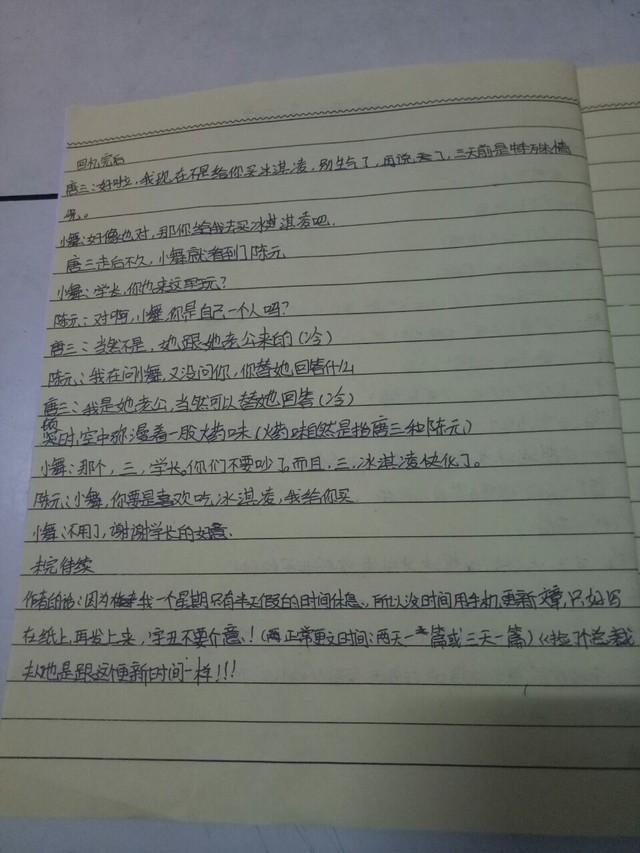 回忆完后
唐三:好啦,我现在不是给你买冰淇凌,别生气了,再说了,三天前是特殊情
况。
小舞:好像也对,那你给我去买冰淇凌吧.
唐三走后不久,小舞就看到了陈元
小舞:学长,你也来这里玩?
陈元:对啊,小舞,你是自己一个人吗?
唐三:当然不是,她跟她老公来的(冷)
陈元:我在问小舞,又没问你,你替她回答什么
唐三:我是她老公,当然可以替她回答(冷)
时,空中弥漫着一股火药味(火药味自然是指唐三和陈元)
小舞:那个,三,学长。你们不要吵了。而且,三,冰淇凌快化了。
陈元:小舞,你要是喜欢吃冰淇凌,我给你买
小舞:不用了,谢谢学长的好意.
未完待续
作者的话:因为我一个星期只有半天假的时间休息,所以没时间用手机更新文章,只好写
在纸上,再发上来,字丑不要介意!(正常更文时间:两天一篇或三天一篇)
也是跟这个更新时间一样!!!